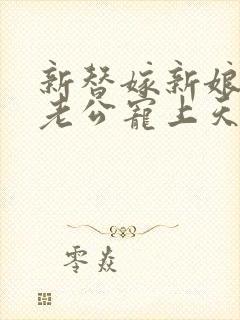 新替嫁新娘
老公宠上天
零焱